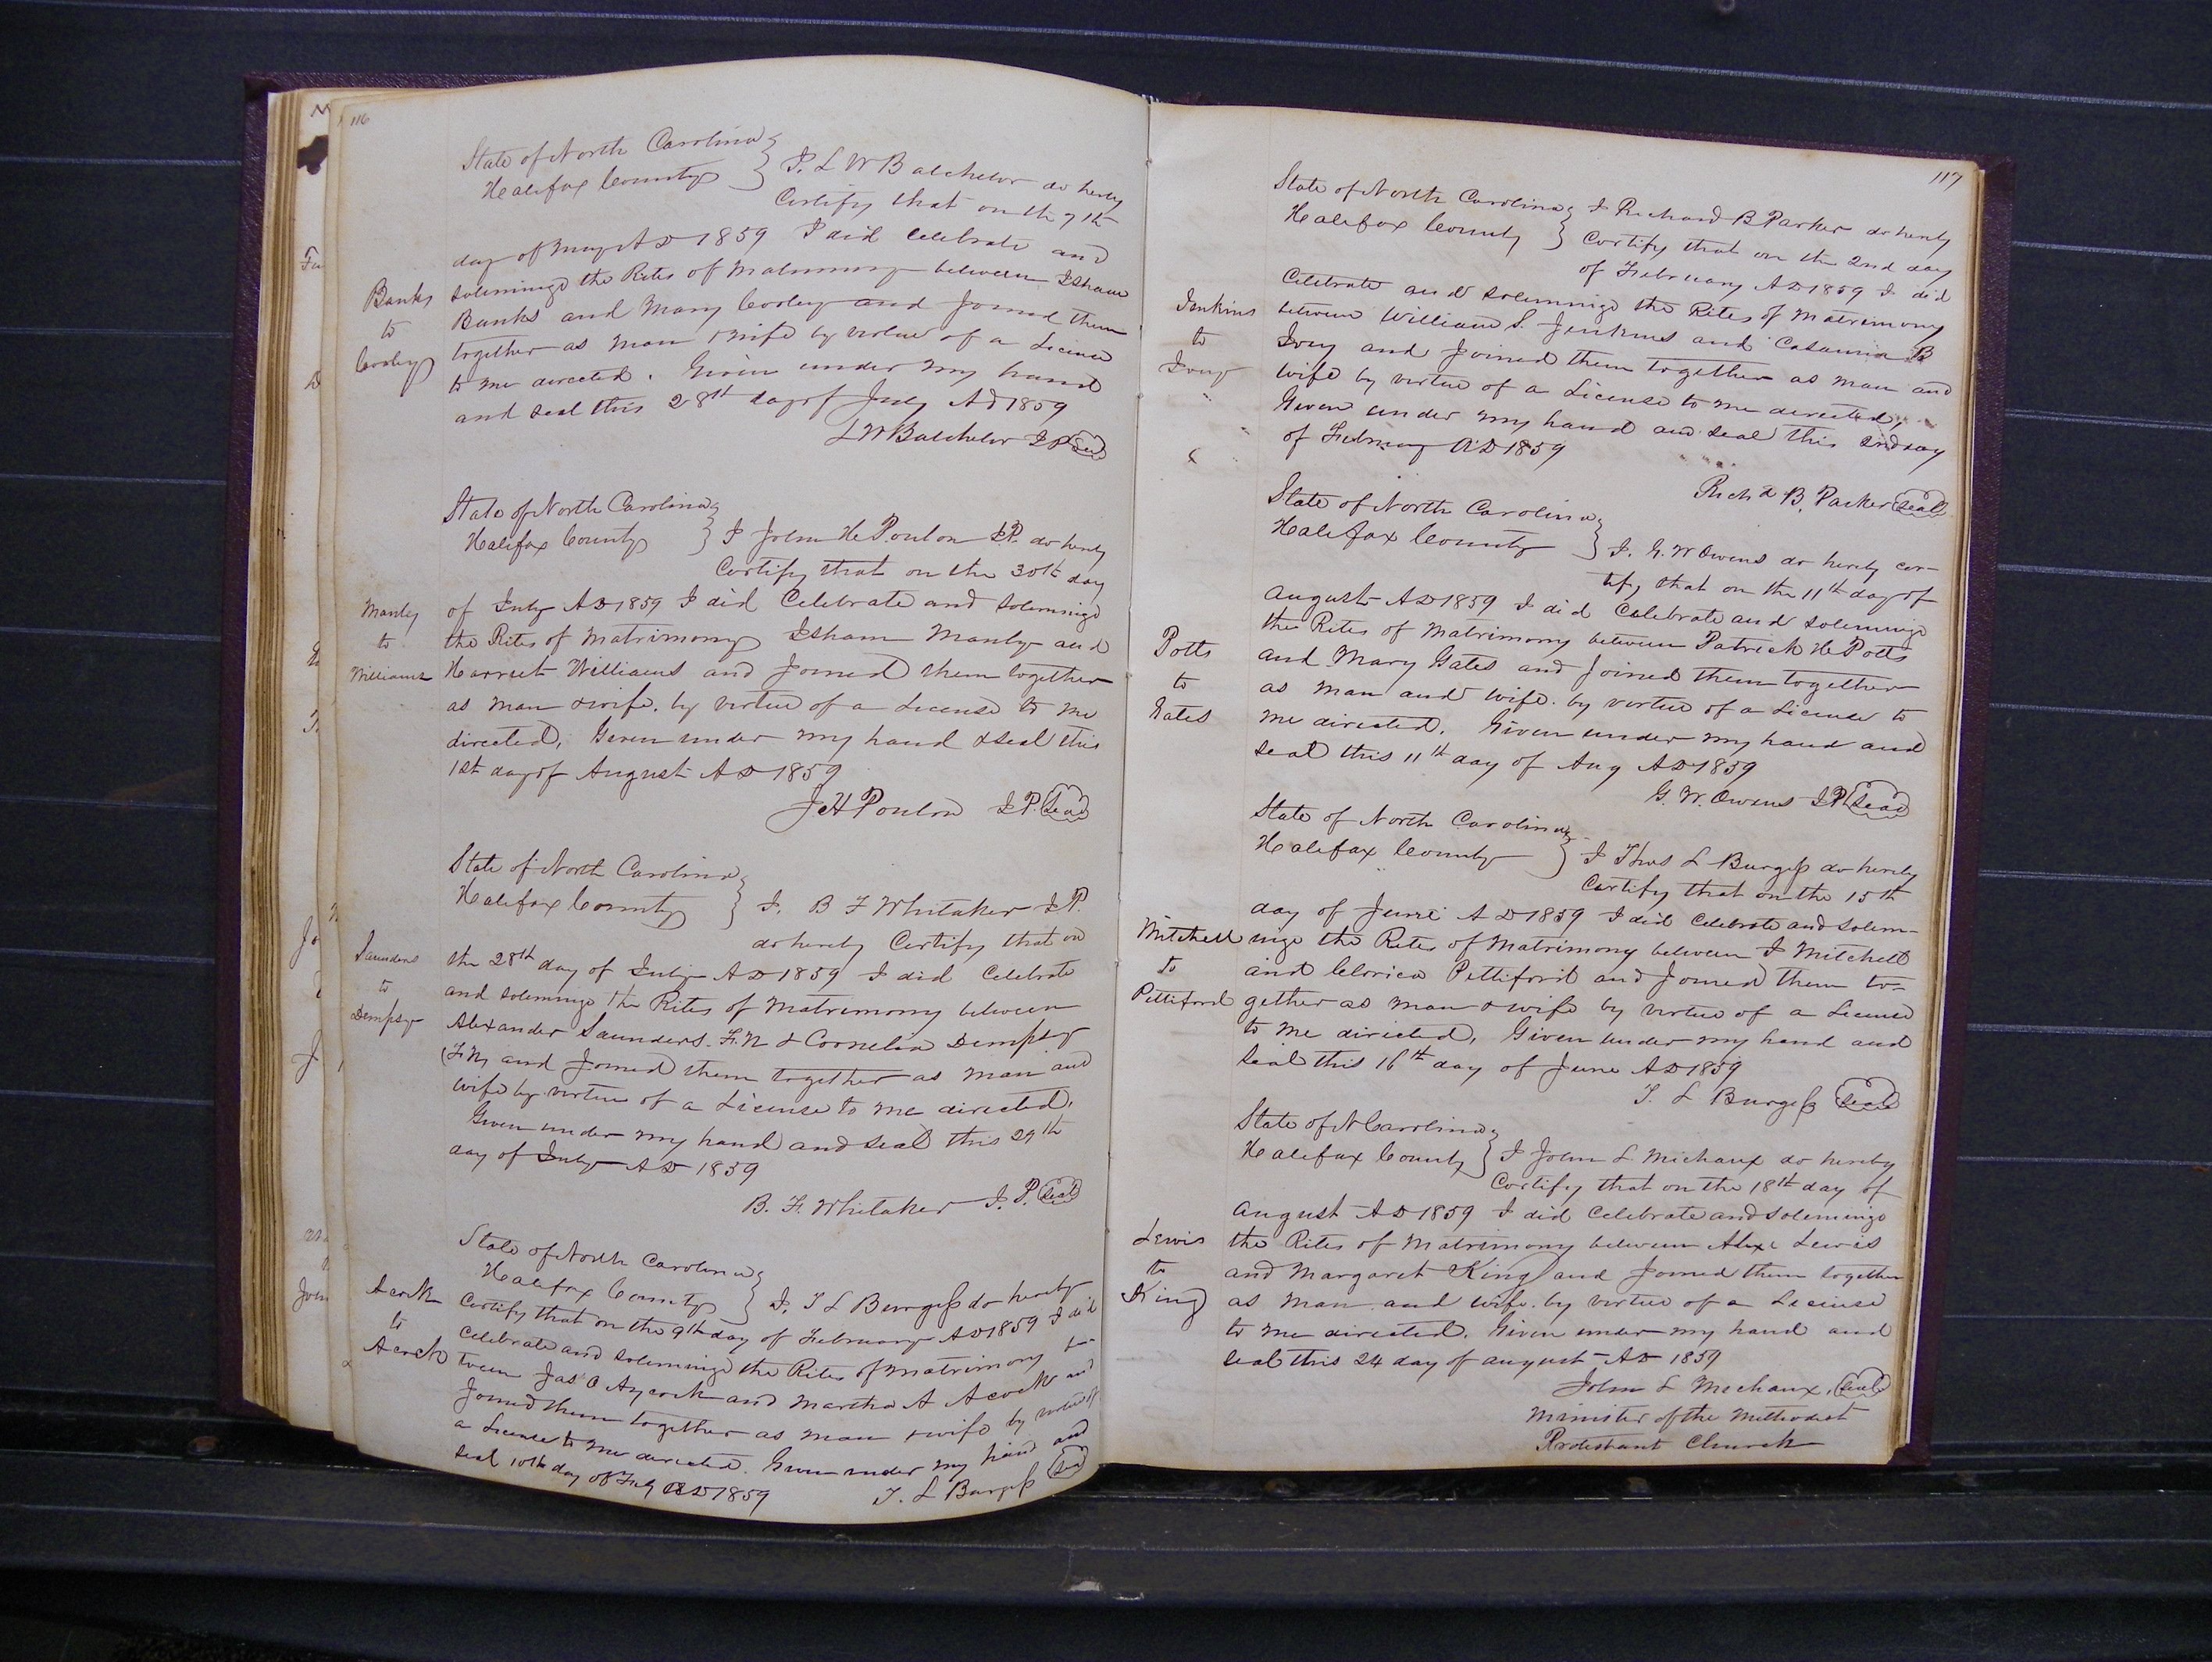 116
State of North Carolina
Halifax County } I, L W Batchelor do hereby
Certify that on the 7th
day of May AD 1859 I did Celebrate and
Solemnize the Rites of Matrimony between Isham
Banks and Mary Cooley and Joined them
together as Man & Wife by virtue of a License
to me directed. Given under my hand
and seal this 28th day of July AD 1859
L W Batchelor JP Seal
Banks
to
Cooley
State of North Carolina
Halifax County } I John H Ponton J.P. do hereby
Certify that on the 30th day
of July AD 1859 I did Celebrate and Solemnize
the Rites of Matrimony Isham Manly and
Harriet Williams and Joined them together
as Man & wife. by virtue of a License to me
directed, Given under my hand & Seal this
1st day of August AD 1859
J H Ponton J.P. Seal
Manley
to
Williams
State of North Carolina
Halifax County } I, B F Whitaker J.P.
do hereby Certify that on
the 28th day of July AD 1859 I did Celebrate
and Solemnize the Rites of Matrimony between
Alexander Saunders. F.N & Cornelia Dempsy
(F.N) and Joined them together as Man and
wife by virtue of a License to me directed,
Given under my hand and seal this 29th
day of July AD 1859
B. F. Whitaker J.P. Seal
Saunders
to
Dempsy
State of North Carolina
Halifax County } I, T L Burgess do hereby
Certify that on the 9th day of February AD 1859 I did
Celebrate and Solemnize the Rites of Matrimony be-
tween Jas O Aycock and Martha A Acock and
Joined them together as Man & wife by virtue of
a License to me directed. Given under my hand and
Seal 10th day of Feby AD 1859
T. L Burgess Seal
Acock
to
Acock
117
State of North Carolina
Halifax County } I Richard B Parker do hereby
Certify that on the 2nd day
of February AD 1859 I did
Celebrate and Solemnize the Rites of Matrimony
between William S. Jenkins and B
Ivey and Joined them together as Man and
Wife by virtue of a License to me directed,
Given under my hand and Seal this 2nd day
of February AD 1859
Richd B. Parker Seal
Jenkins
to
Ivey
State of North Carolina
Halifax County } I. G. W Owens do hereby cer-
tify that on the 11th day of
August AD 1859 I did Celebrate and Solemnize
the Rites of Matrimony between Patrick H Potts
and Mary Gates and Joined them together
as Man and Wife. by virtue of a License to
me directed. Given under my hand and
Seal this 11th day of Aug AD 1859
G. W. Owens JP Seal
Potts
to
Gates
State of North Carolina
Halifax County } I Thos L Burgess do hereby
Certify that on the 15th
day of June AD 1859 I did Celebrate and Solem-
nize the Rites of Matrimony between J Mitchell
and Clorica Pettiford and Joined them to-
gether as Man & Wife by virtue of a License
to me directed, Given under my hand and
Seal this 16th day of June AD 1859
T. L Burgess Seal
Mitchell
to
Pettiford
State of N Carolina
Halifax County } I John L. Michaux do hereby
Certify that on the 18th day of
August AD 1859 I did Celebrate and Solemnize
the Rites of Matrimony between Alex Lewis
and Margaret King and Joined them together
as Man and Wife. by virtue of a License
to me directed. Given under my hand and
Seal this 24 day of August AD 1859
John L Michaux, Seal
Minister of the Methodist
Protestant Church
Lewis
to
King